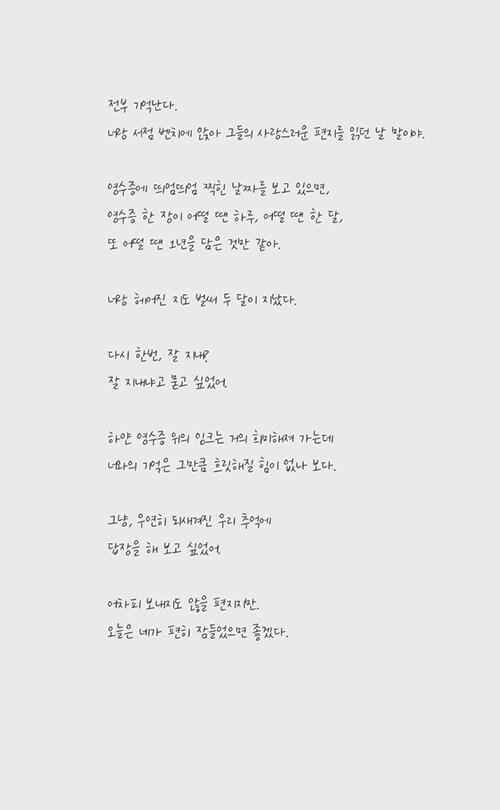 전부 기억난다.
너랑 서점 벤치에 앉아 그들의 사랑스러운 편지를 읽던 날 말이야.
영수증에 띄엄띄엄 찍힌 날짜를 보고 있으면,
영수증 한 장이 어떨 땐 하루, 어떨 땐 한 달,
또 어떨 땐 1년을 담은 것만 같아.
너랑 헤어진 지도 벌써 두 달이 지났다.
다시 한번, 잘 지내?
잘 지내냐고 묻고 싶었어.
하얀 영수증 위의 잉크는 거의 희미해져 가는데
너와의 기억은 그만큼 흐릿해질 힘이 없나 보다.
그냥, 우연히 되새겨진 우리 추억에
답장을 해 보고 싶었어.
어차피 보내지도 않을 편지지만.
오늘은 네가 편히 잠들었으면 좋겠다.